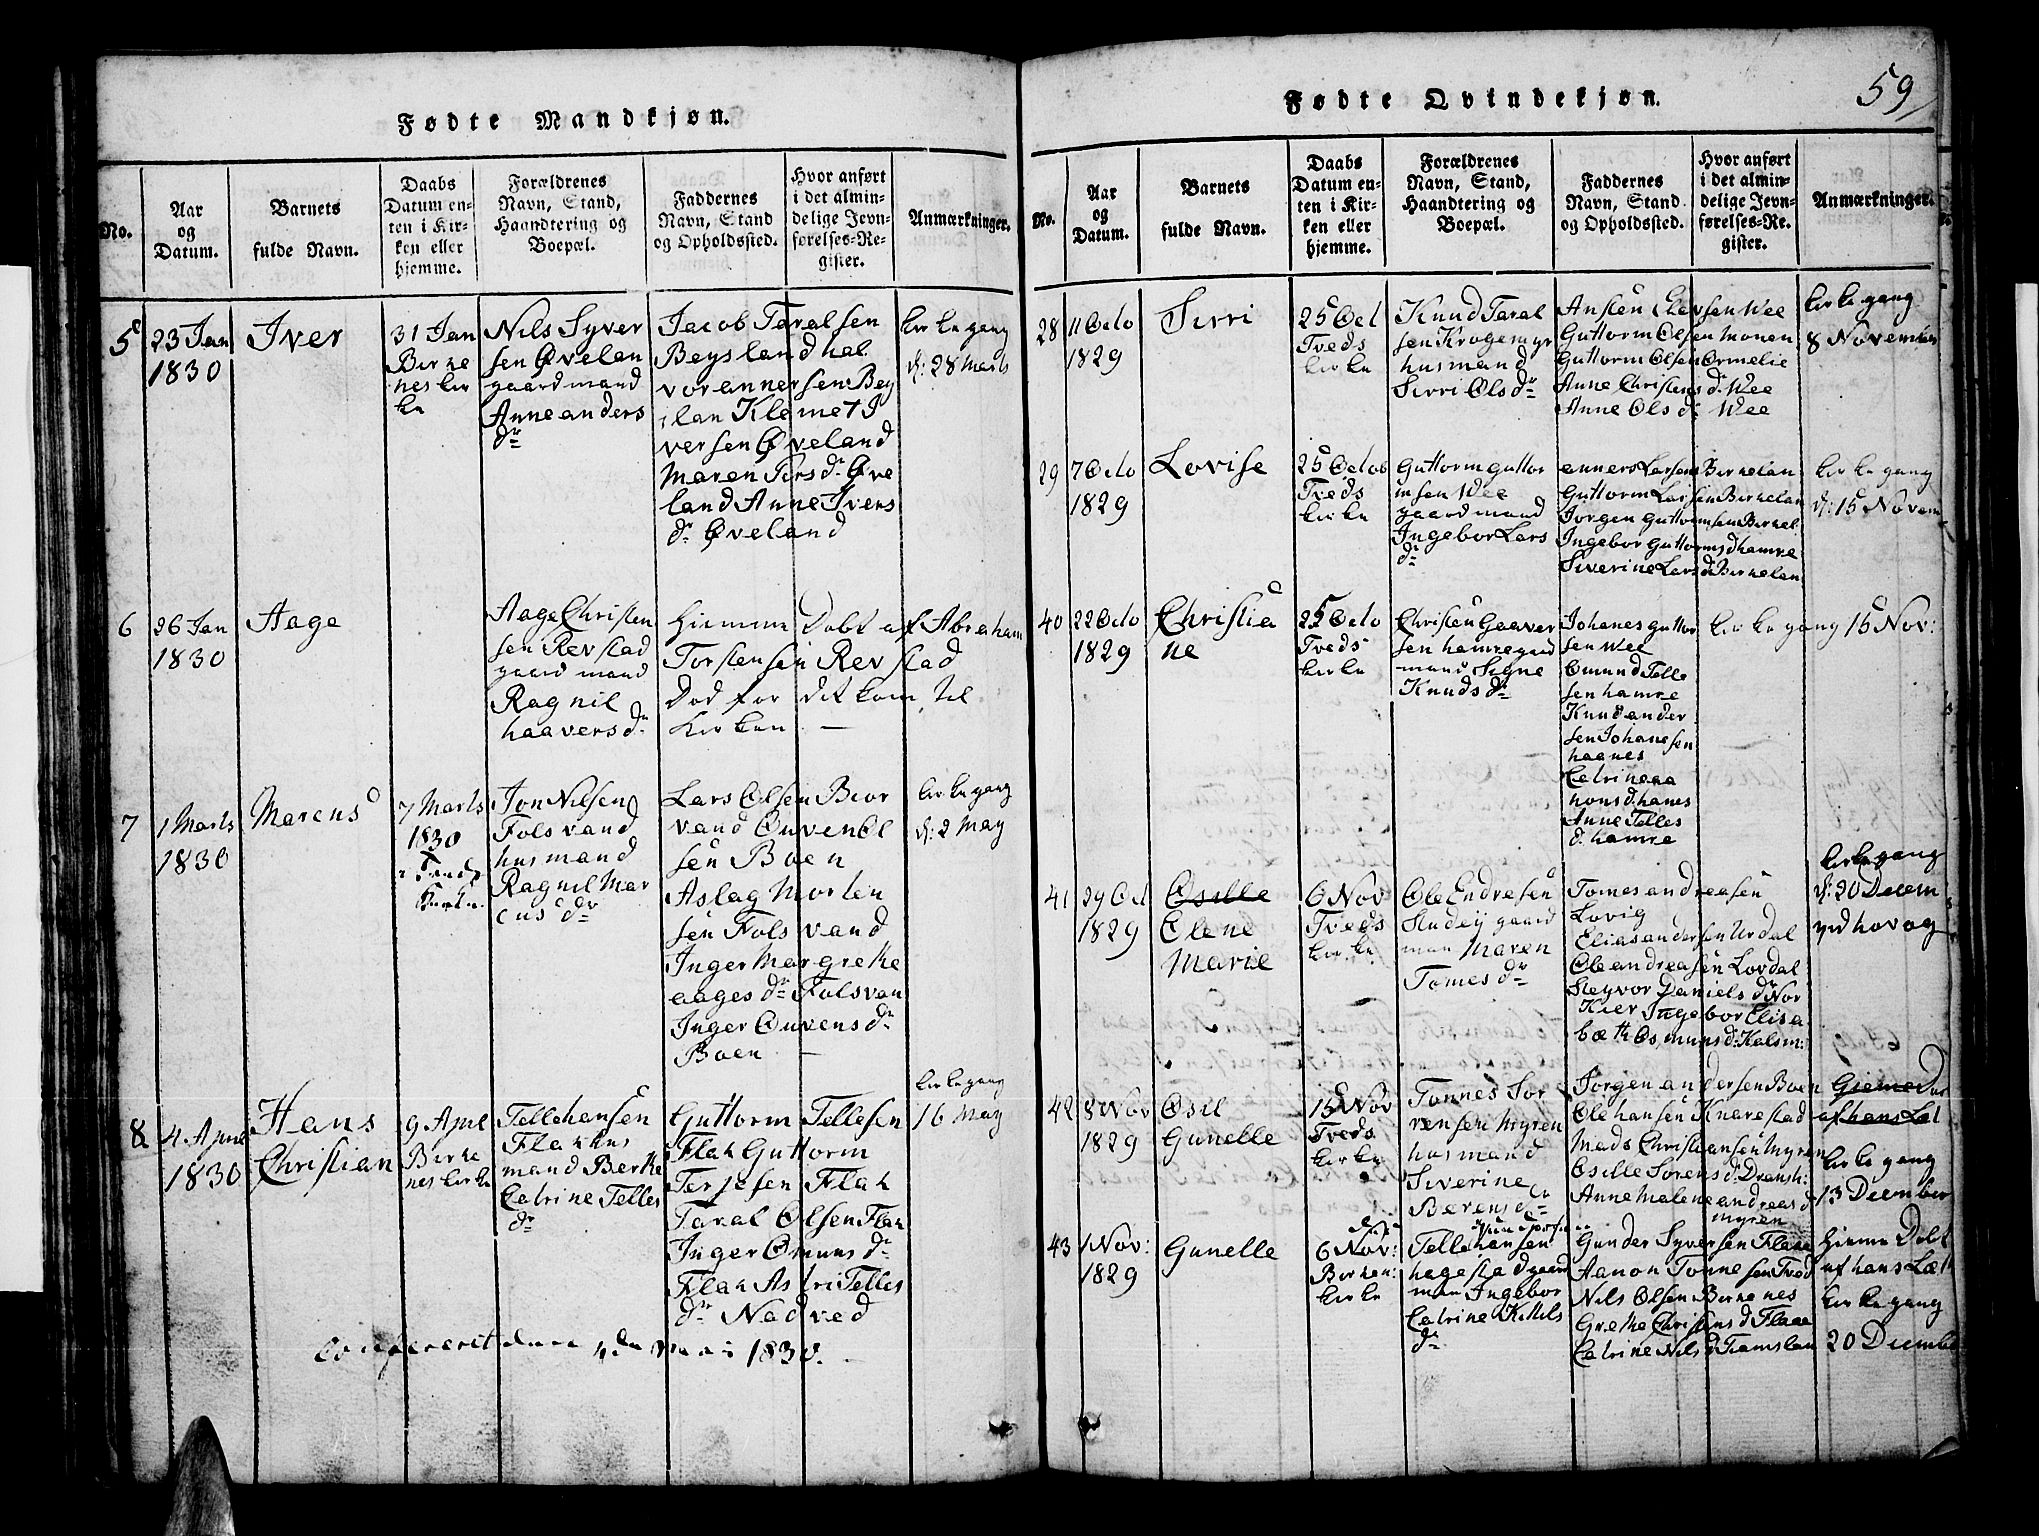 Fødte Mandkjøn.
No.
Aar
og
Datum.
Barnets
fulde Navn.
Daabs
Datum en-
ten i Kir-
ken eller
hjemme.
Forældrenes
Navn, Stand,
Haandtering og
Boepæl.
Faddernes
Navn, Stand
og Opholdssted.
Hvor anført
i det almin-
delige Jevn-
førelses-Re-
gister.
Anmærkninger.
5
23 Jan
1830
Iver
31 Jan
Birke
nes kir
ke
Nils Syver
sen Øvelan
gaardmand
Anne anders
dr
Jacob Taralsen
Beysland hal
vor annersen Bey
ilan Klemet I
versen Øveland
Maren Tersdr Øve
land Anne Ivers
dr Øveland
kirkegang
d: 28 Marts
6
26 Jan
1830
Aage
Aage Christen
sen Revstad
gaardmand
Ragnil
haaversdr
Hiemme Dobt af Abraham
Torstensen Revstad
Dod for det kom til
Kirken —
7
1 Marts
1830
Marens
7 Marts
1830
Jon Nilsen
Folsvand
husmand
Ragnil Mar
cusdr
Lars Olsen Bior
vand Ouven Ol
sen Boen
Aslag Morten
sen Folsvand
Inger Margrethe
aagesdr Folsvan
Inger Ouvensdr
Boen —
kirkegang
d: 2 May
8
4 April
1830
Hans
Christian
9 April
Birke
nes kirke
Telle hansen
Flak hus
mand Berthe
Catrine Telles
dr
Guttorm Tellesen
Flak Guttorm
Terjesen Flak
Taral Olsen Flak
Inger Omunsdr
Flak Astri Telles
dr Nadved
kirkegang
16 May
1830.
Fødte Qvindekjøn.
59
No.
Aar
og
Datum.
Barnets
fulde Navn.
Daabs
Datum en-
ten i Kir-
ken eller
hjemme.
Forældrenes
Navn, Stand,
Haandtering og
Boepæl.
Faddernes
Navn, Stand
og Opholdssted.
Hvor anført
i det almin-
delige Jevn-
førelses-Re-
gister.
Anmærkninger.
28
11 Octo
1829
Sirri
25 Oct
Tveds
kirke
Knud Taral
sen Krogemyr
husmand
Sirri Olsdr
Guttorm Olsen monen
Guttorm Olsen Ormelie
Anne Christensdr Wee
Anne Olsdr Wee
kirkegang
8 November
29
7 Octo
1829
Lovise
25 Octob
Tveds
kirke
Guttorm guttor
msen Wee
gaardmand
Ingebor Lars
dr
anners Larsen Birkelan
Guttorm Larsen Birkelan
Jorgen Guttormsen Birkel
Ingebor Guttormsd hamre
Siverine Larsd Birkelan
kirkegang
d: 15 Novem
40
22 Octo
1829
Christia
ne
25 Octo
Tveds
kirke
Christen Geaver
sen hamregard
mand Signe
Knudsdr
Johanes guttor
sen Wee
Omund Telle
sen hamre
Knud ander
sen Johanesen
haanes
Catrine aa
nonsd: hanes
Anne Telles
d: hamre
kirkegang 15 Nov:
41
29 Oct
1829
Osille
Elene
Marie
6 Nov
Tveds
kirke
Ole Endresen
Studey gaard
man Maren
Tomesdr
Tomes andreasen
Lovig
Elias andersen Urdal
Ole andreasen Lovdal
Steyvor Danielsdr Nor
Kier Ingebor Elisa
bæth Osmunsdr Kalsm:
kirkegang
d: 20 Decem
ved hovog
42
8 Nov
1829
Osil
Gunelle
15 Nov
Tveds
kirke
Tonnes Sor
rensen Myren
husmand
Siverine
Berensdr
Jorgen andersen Boen
Ole hansen Knarestad
Mads Christiansen myren
Osille Sorensd: Drensh:
Anne Malene andreasd
myren
af hans Læt
kirkegang
13 December
43
1 Nov:
1829
Gunelle
6 Nov:
Birken:
kirke
Telle hansen
hagestad gaard
man Ingebor
Catrine Kittils
dr
Gunder Syversen Flaae
Aanon Tonnesen Tved
Nils Olsen Birkenes
Grethe Christensd Flaae
Catrine Nilsd Tiamslan
hieme Dobt
af hans Læt
kirkegang
20 Decemb